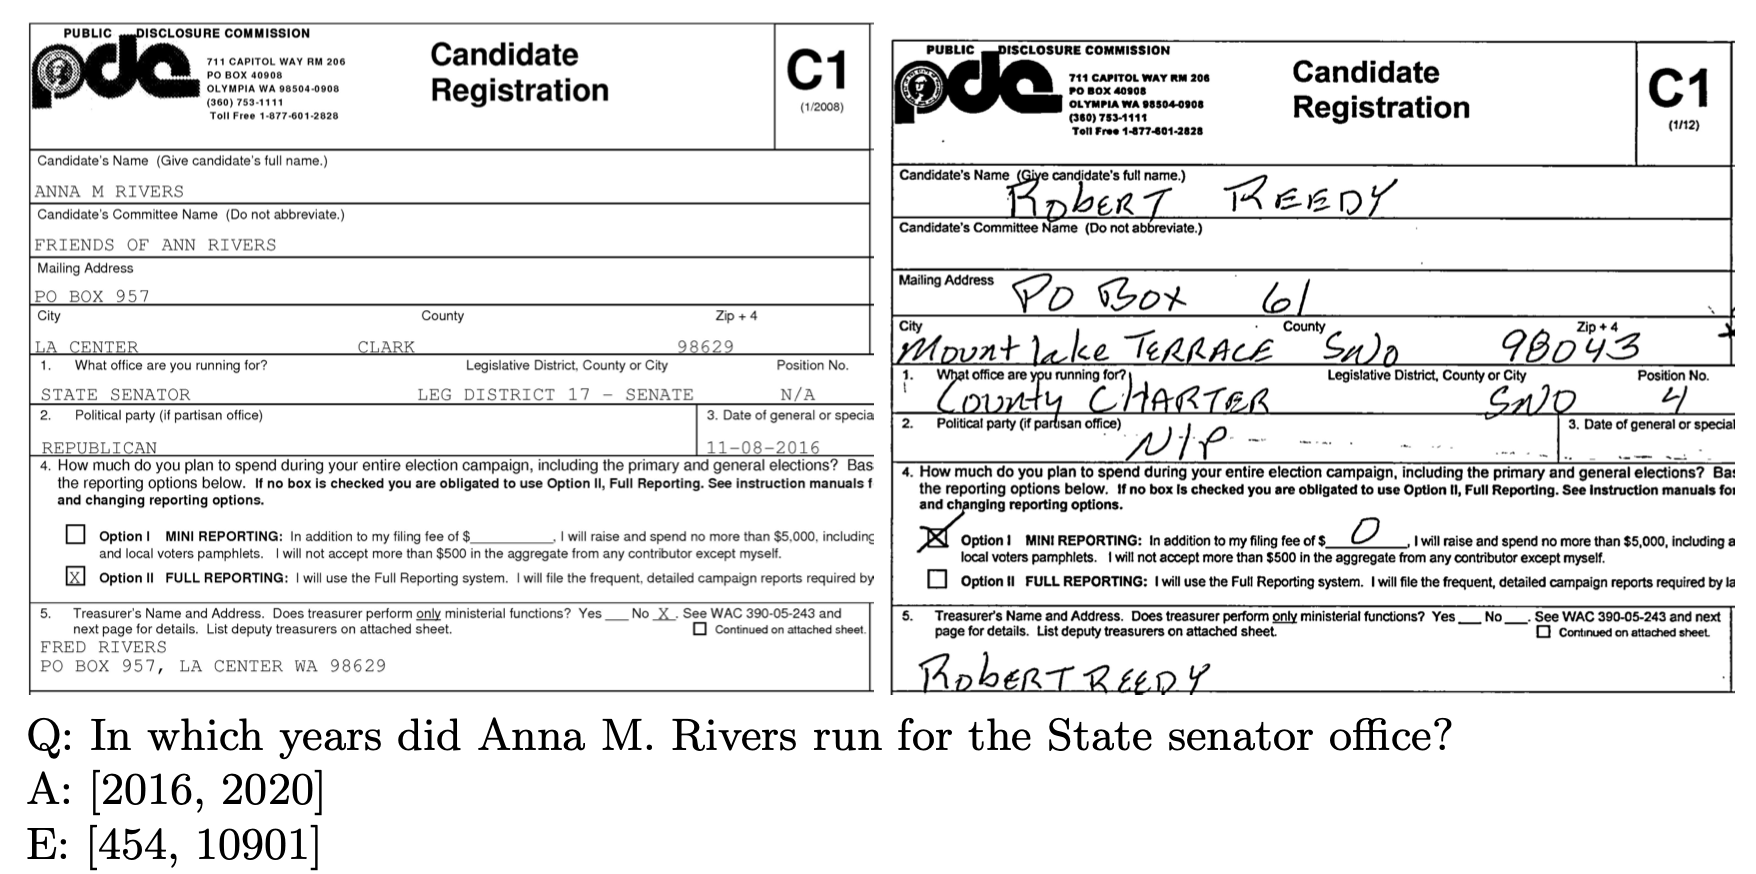 PUBLIC DISCLOSURE COMMISSION
pdc
711 CAPITOL WAY RM 206
PO BOX 40908
OLYMPIA WA 98504-0908
(360) 753-1111
Toll Free 1-877-601-2828
Candidate
Registration
C1
(1/2008)
Candidate's Name (Give candidate's full name.)
ANNA M RIVERS
Candidate's Committee Name (Do not abbreviate.)
FRIENDS OF ANN RIVERS
Mailing Address
PO BOX 957
City County Zip + 4
LA CENTER CLARK 98629
1. What office are you running for? Legislative District, County or City Position No.
STATE SENATOR LEG DISTRICT 17 - SENATE N/A
2. Political party (if partisan office) 3. Date of general or specia
REPUBLICAN 11-08-2016
4. How much do you plan to spend during your entire election campaign, including the primary and general elections? Bas
the reporting options below. If no box is checked you are obligated to use Option II, Full Reporting. See instruction manuals f
and changing reporting options.
Option I MINI REPORTING: In addition to my filing fee of $__________, I will raise and spend no more than $5,000, including
and local voters pamphlets. I will not accept more than $500 in the aggregate from any contributor except myself.
X Option II FULL REPORTING: I will use the Full Reporting system. I will file the frequent, detailed campaign reports required by
5. Treasurer's Name and Address. Does treasurer perform only ministerial functions? Yes ___ No _X_. See WAC 390-05-243 and
next page for details. List deputy treasurers on attached sheet. Continued on attached sheet.
FRED RIVERS
PO BOX 957, LA CENTER WA 98629
PUBLIC DISCLOSURE COMMISSION
pdc
711 CAPITOL WAY RM 206
PO BOX 40908
OLYMPIA WA 98504-0908
(360) 753-1111
Toll Free 1-877-601-2828
Candidate
Registration
C1
(1/12)
Candidate's Name (Give candidate's full name.)
ROBERT REEDY
Candidate's Committee Name (Do not abbreviate.)
Mailing Address PO BOX 61
City County Zip + 4
Mountlake TERRACE SNO 98043
1. What office are you running for? Legislative District, County or City Position No.
COUNTY CHARTER SNO 4
2. Political party (if partisan office) 3. Date of general or special
N/P
4. How much do you plan to spend during your entire election campaign, including the primary and general elections? Bas
the reporting options below. If no box is checked you are obligated to use Option II, Full Reporting. See instruction manuals for
and changing reporting options.
Option I MINI REPORTING: In addition to my filing fee of $ 0 , I will raise and spend no more than $5,000, including a
local voters pamphlets. I will not accept more than $500 in the aggregate from any contributor except myself.
Option II FULL REPORTING: I will use the Full Reporting system. I will file the frequent, detailed campaign reports required by la
5. Treasurer's Name and Address. Does treasurer perform only ministerial functions? Yes ___ No ___. See WAC 390-05-243 and next
page for details. List deputy treasurers on attached sheet. Continued on attached sheet.
ROBERT REEDY
Q: In which years did Anna M. Rivers run for the State senator office?
A: [2016, 2020]
E: [454, 10901]